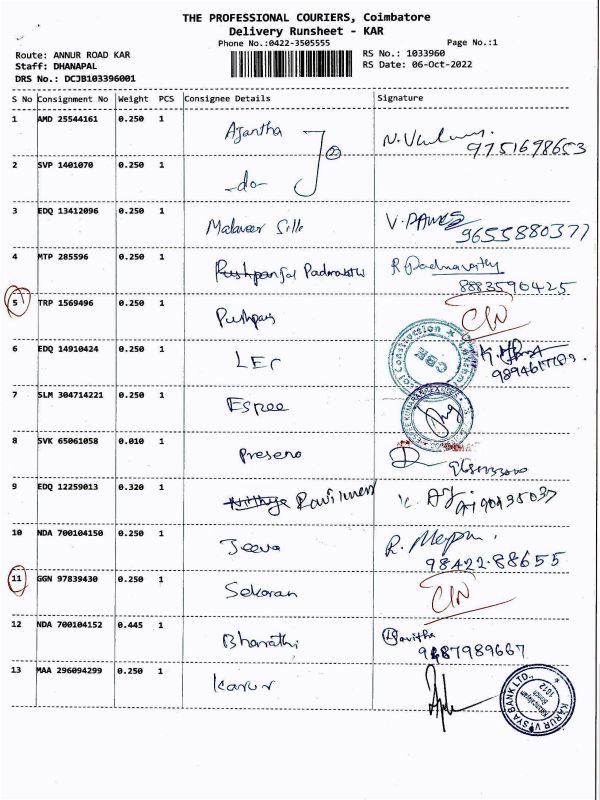 THE PROFESSIONAL COURIERS, Coimbatore
Delivery Runsheet - KAR
Phone No.:0422-3505555 Page No.:1
Route: ANNUR ROAD KAR RS No.: 1033960
Staff: DHANAPAL RS Date: 06-Oct-2022
DRS No.: DCJB103396001
S No Consignment No Weight PCS Consignee Details Signature
1 AMD 25544161 0.250 1 Ajantha 2
9751698653
2 SVP 1401070 0.250 1 -do-
3 EDQ 13412096 0.250 1
9655880377
4 MTP 285596 0.250 1 R Padmavathy
8883590425
5 TRP 1569496 0.250 1
6 EDQ 14910424 0.250 1
7 SLM 304714221 0.250 1 Espee
8 SVK 65061058 0.010 1
9 EDQ 12259013 0.320 1
10 NDA 700104150 0.250 1 Jeeva
98422-88655
11 GGN 97839430 0.250 1 Sekaran
12 NDA 700104152 0.445 1 Bharathi
9487989667
13 MAA 296094299 0.250 1 Karur
KARUR VYSYA BANK LTD.,
1012